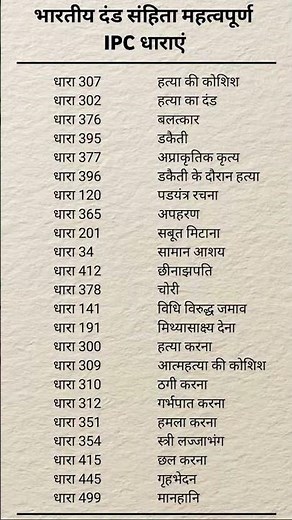 भारतीय दंड संहिता महत्वपूर्ण
IPC धाराएं
धारा 307 हत्या की कोशिश
धारा 302 हत्या का दंड
धारा 376 बलत्कार
धारा 395 डकैती
धारा 377 अप्राकृतिक कृत्य
धारा 396 डकैती के दौरान हत्या
धारा 120 पडयंत्र रचना
धारा 365 अपहरण
धारा 201 सबूत मिटाना
धारा 34 सामान आशय
धारा 412 छीनाझपति
धारा 378 चोरी
धारा 141 विधि विरुद्ध जमाव
धारा 191 मिथ्यासाक्ष्य देना
धारा 300 हत्या करना
धारा 309 आत्महत्या की कोशिश
धारा 310 ठगी करना
धारा 312 गर्भपात करना
धारा 351 हमला करना
धारा 354 स्त्री लज्जाभंग
धारा 415 छल करना
धारा 445 गृहभेदन
धारा 499 मानहानि